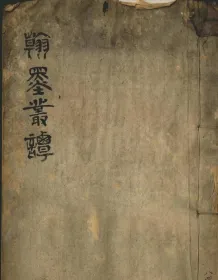 翰墨叢譚